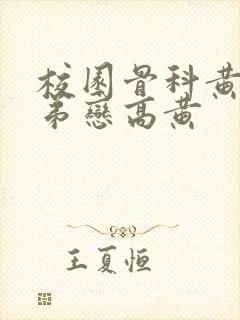 校園骨科黃
弟戀高黃
王夏恒